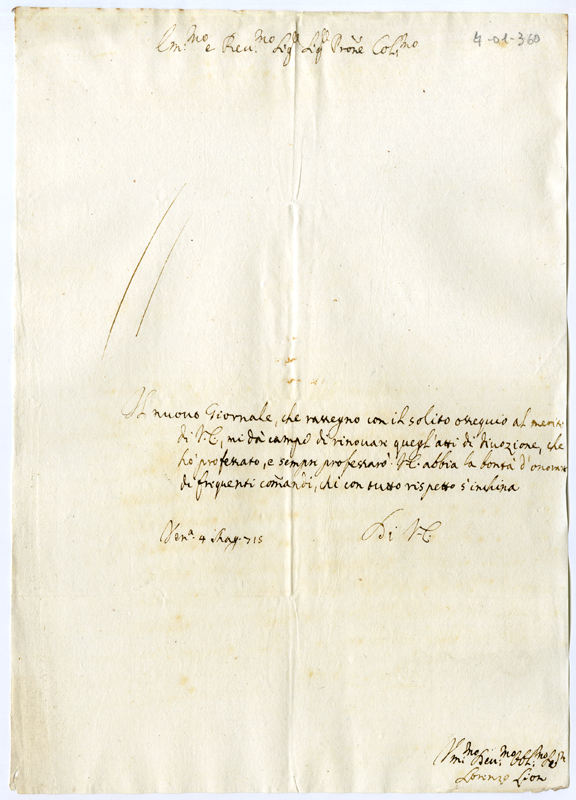 Em:mo e Reu:mo Sigr Sigr Prone Col:mo
4-01-360
Il nuovo Giornale, che rassegno con il solito ossequio al merito
di V.E., mi dà campo di rinouare quegl'atti di diuozione, che
hò professato, e sempre professarò. V.E. abbia la bontà d'onorar
di frequenti comandi, chi con tutto rispetto s'inchina
Vena. 4 Mag. 715
Di V.E.
Vm:mo Deu:mo Obb:mo
Lorenzo Lion